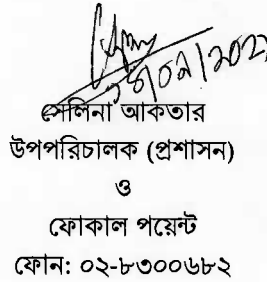 সেলিনা আকতার
উপপরিচালক (প্রশাসন)
ও
ফোকাল পয়েন্ট
ফোন: ০২-৮৩০০৬৮২